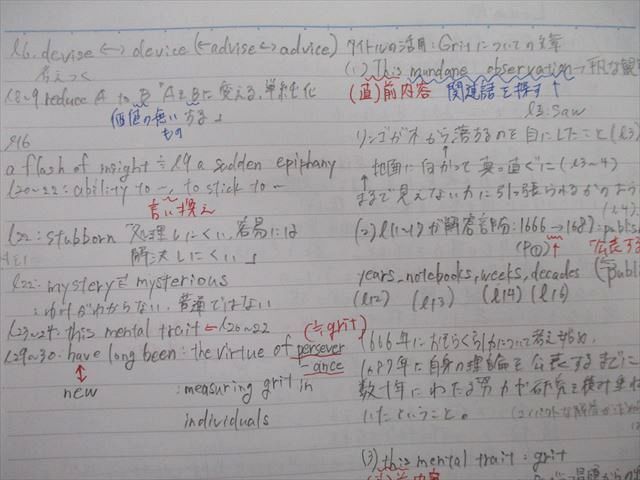 l6. devise ↔ device (←advise↔advice)
考えつく
l8~9 reduce A to B 「AをBに変える、単純化
価値の無い する」
もの
l16
a flash of insight ≒ l9 a sudden epiphany
l20~22 : ability to ~, to stick to ~
言い換え
l22 : stubborn 処理しにくい, 容易には
解決しにくい」
l22 : mystery mysterious
: わけがわからない, 普通ではない
l23~24 : this mental trait ← l20~22
(≒grit)
l29~30 : have long been : the virtue of persever
ance
new : measuring grit in
individuals
タイトルの活用 : Gritについての文章
(1) This mundane observation → 平凡な観
(直)前内容 関連語を探す↑
l3 : saw
リンゴが木から落ちるのを目にしたこと (l3)
地面に向かって真っ直ぐに (l3~4)
まるで見えない力に引っ張られるかのよう
(l4)
(2) l11~17が解答部分 : 1666 → 1687 : publis
(P①)↑ 公表する
years, notebooks, weeks, decades
(l12) (l13) (l14) (l16)
1666年にちからについて考え始め,
1687年に自身の理論を公表するまでに
数十年にわたる努力や研究を積み重ね
いたということ。
(3) this mental trait : grit